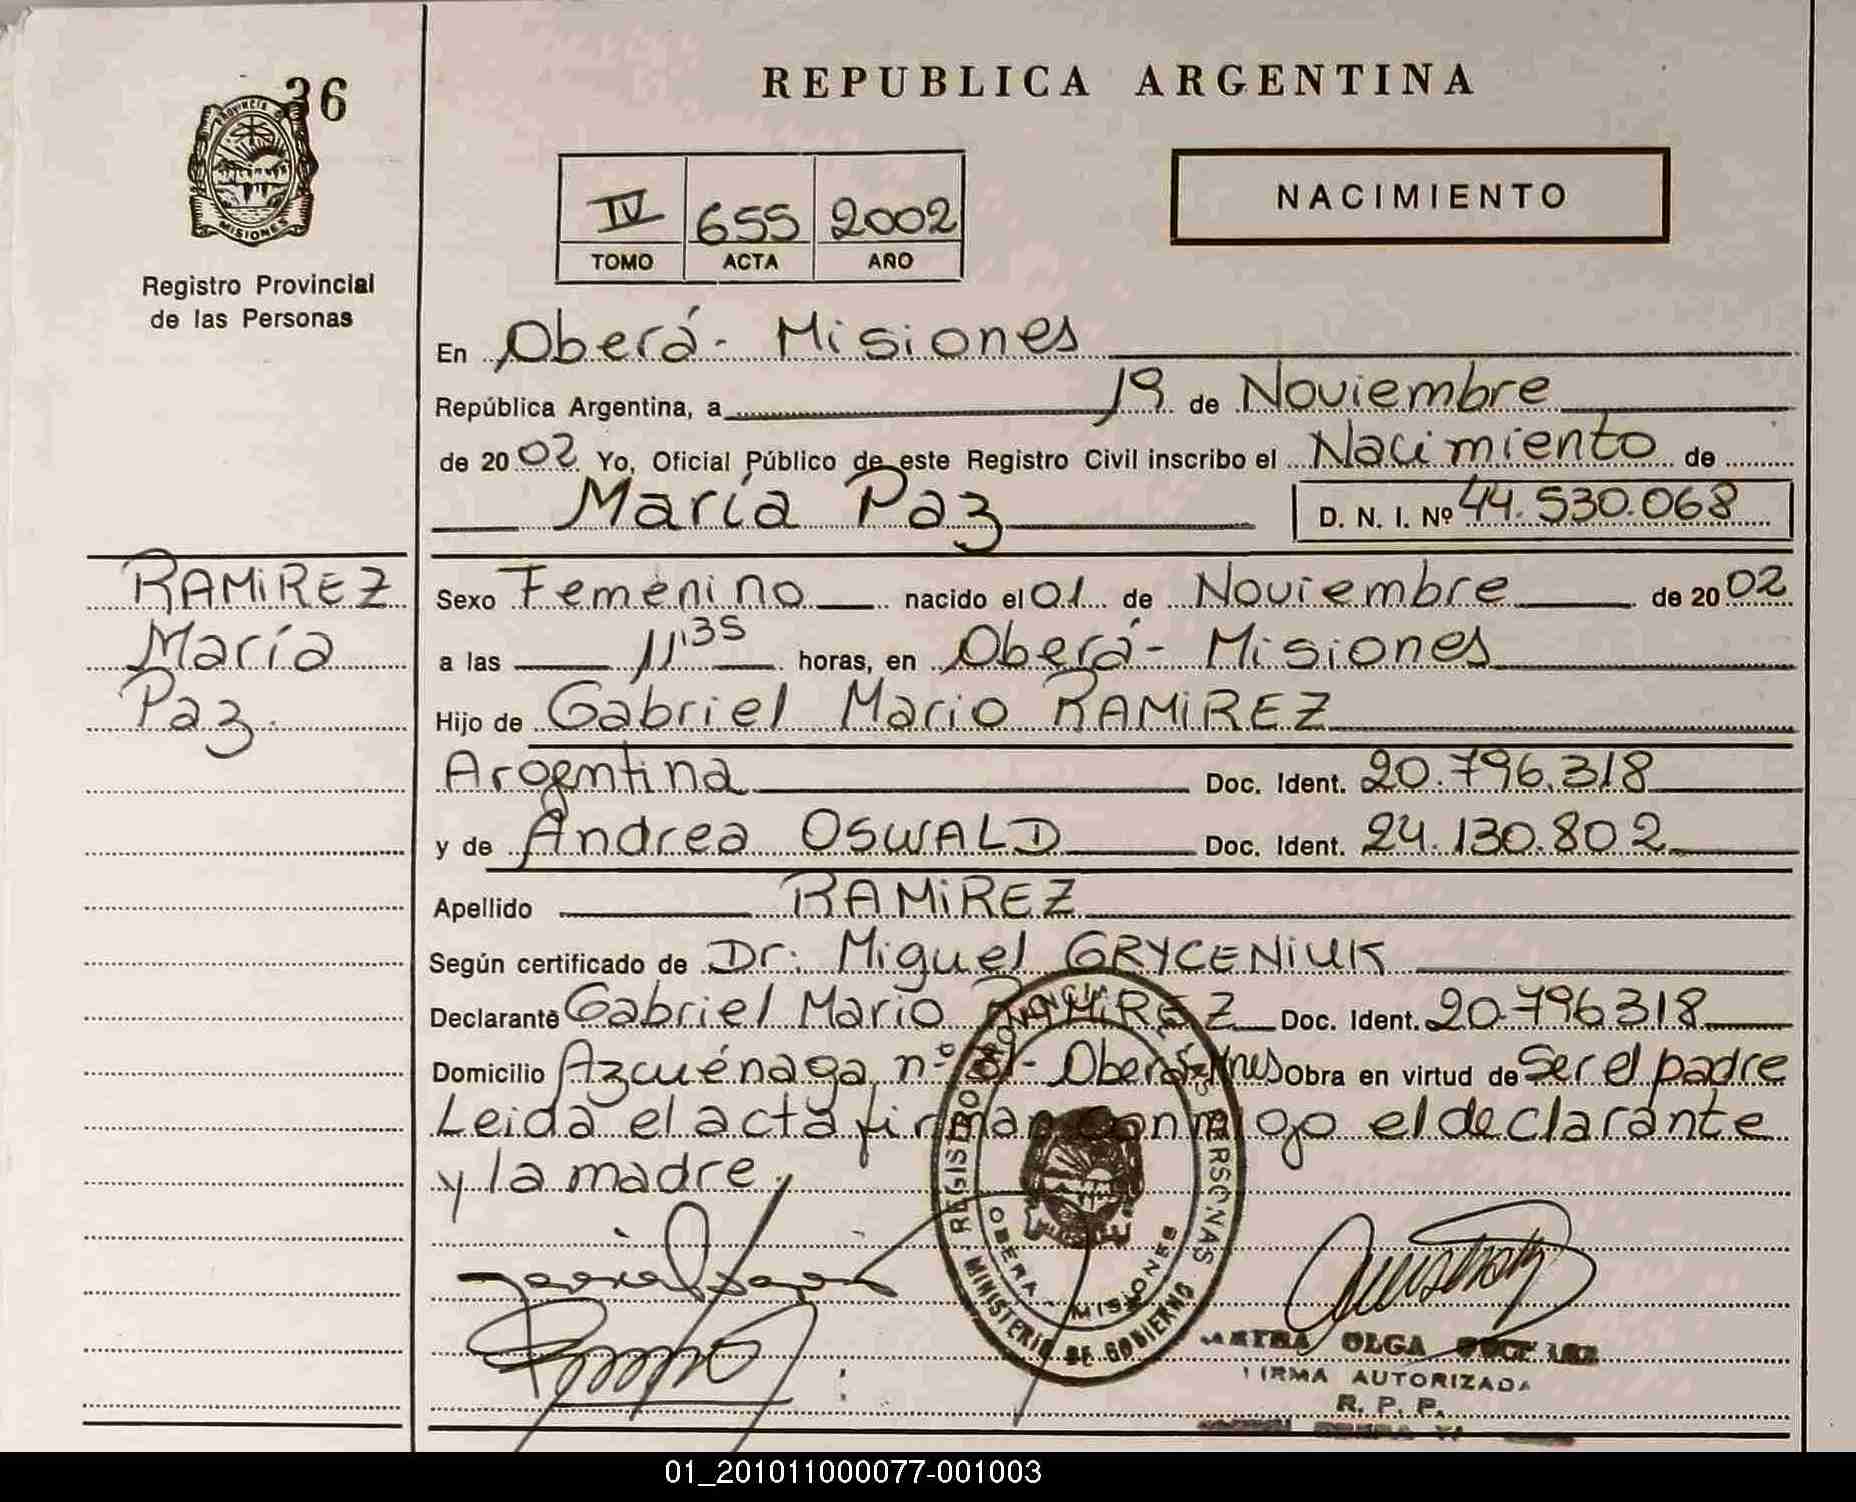 36
REPUBLICA ARGENTINA
PROVINCIA DE
MISIONES
Registro Provincial
de las Personas
IV 655 2002
TOMO ACTA AÑO
NACIMIENTO
En Oberá - Misiones
República Argentina, a 19 de Noviembre
de 2002 Yo, Oficial Público de este Registro Civil inscribo el Nacimiento de
María Paz D. N. I. Nº 44.530.068
RAMIREZ
María
Paz.
Sexo Femenino nacido el 01 de Noviembre de 2002
a las 11:35 horas, en Oberá - Misiones
Hijo de Gabriel Mario RAMIREZ
Argentina Doc. Ident. 20.796.318
y de Andrea OSWALD Doc. Ident. 24.130.802
Apellido RAMIREZ
Según certificado de Dr. Miguel GRYCENIUK
Declarante Gabriel Mario RAMIREZ Doc. Ident. 20.796318
Domicilio Azcuénaga nº - Oberá - Mnes Obra en virtud de Ser el padre
Leida el acta firman conmigo el declarante
y la madre.
REGISTRO PROVINCIAL DE LAS PERSONAS
MINISTERIO DE GOBIERNO
OBERA - MISIONES
OLGA
FIRMA AUTORIZADA
R. P. P.
01_201011000077-001003